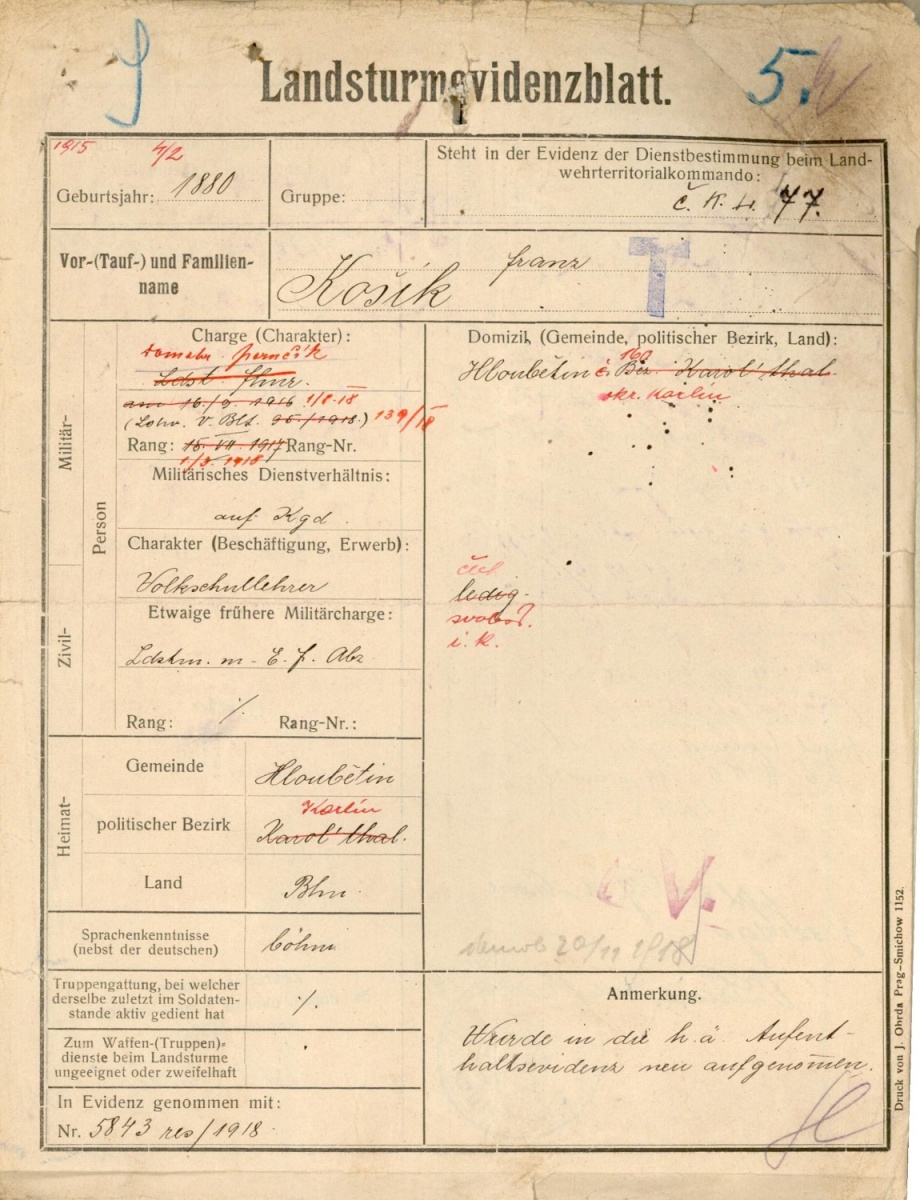 5.
Landsturmevidenzblatt.
1915 4/2
Geburtsjahr: 1880
Gruppe:
Steht in der Evidenz der Dienstbestimmung beim Land-
wehrterritorialkommando:
77.
Vor-(Tauf-) und Familien-
name
Franz
Košik
T
Militär-
Zivil-
Person
Charge (Charakter):
Ldst
am 16/9. 1916 1/8 18
V. Blt. 95/1918.) 139/18
Rang: 15. VII. 1917 Rang-Nr.
1/3. 1918
Militärisches Dienstverhältnis:
auf Kgd.
Charakter (Beschäftigung, Erwerb):
Volkschullehrer
Etwaige frühere Militärcharge:
Ldstm. m. E. f. Abz
Rang: ·/. Rang-Nr.:
Domizil (Gemeinde, politischer Bezirk, Land):
Hloubětin č. 160 Bez. Karol'thal.
okr. Karlín
ledig.
svobod.
Heimat-
Gemeinde
Hloubětin
politischer Bezirk
Karlín
Karol'thal.
Land
Bhm.
V.
20/11 1918
Sprachenkenntnisse
(nebst der deutschen)
böhm
Truppengattung, bei welcher
derselbe zuletzt im Soldaten-
stande aktiv gedient hat
·/.
Zum Waffen-(Truppen)-
dienste beim Landsturme
ungeeignet oder zweifelhaft
In Evidenz genommen mit:
Nr. 5843 res/1918.
Anmerkung.
Wurde in die h.ä. Aufent-
haltsevidenz neu aufgenom̄en.
Druck von J. Ohrda Prag-Smichow 1152.